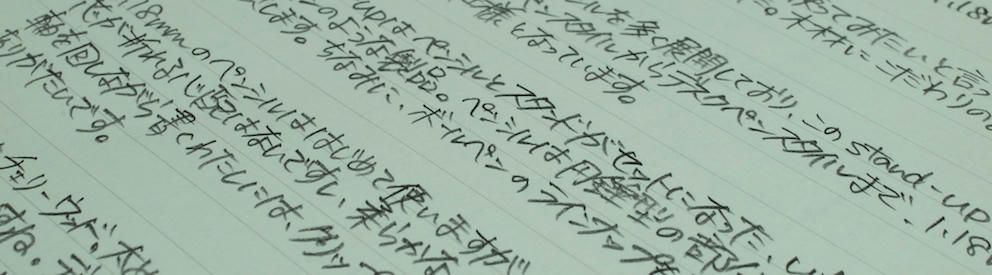 1.18
みたいと言っ
木材にこだわりの
ルを多く展開しており、このstand-up
ペンスタイルからデスクペンスタイルまで、1.18
様となっています。
upはペンシルとスタンドがセットになった、
のような製品。ペンシルは円錐型の部
します。ちなみに、ボールペンのラインナップ
1.18mmのペンシルははじめて使いますが
芯が折れる心配はないですし、柔らかな
軸を回しながら書くわたしには、グリッ
ありがたいです。
チェリーウッド。木
すね。